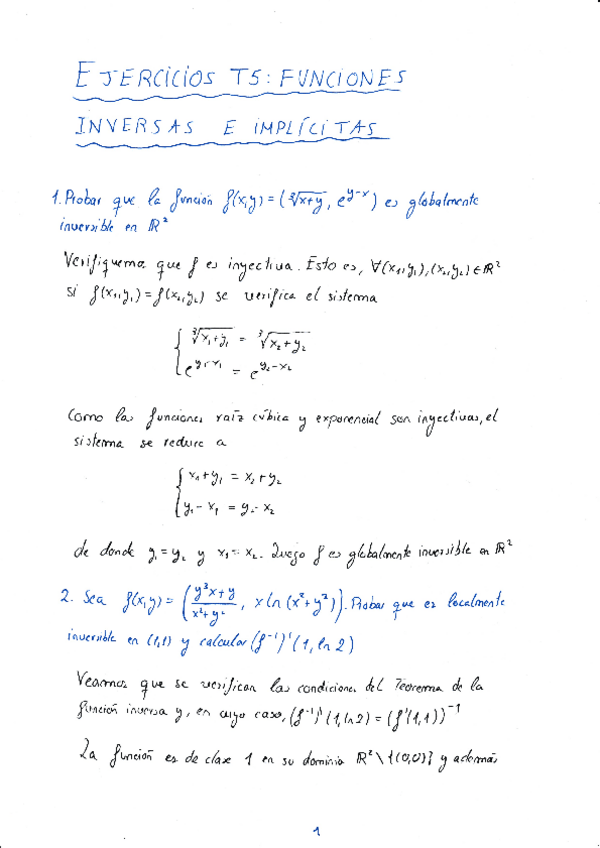 EJERCICIOS T5: FUNCIONES
INVERSAS E IMPLÍCITAS
1. Probar que la función f(x,y) = (∛x+y, e^{y-x}) es globalmente
inversible en ℝ²
Verifiquemos que f es inyectiva. Esto es, ∀(x₁,y₁),(x₂,y₂) ∈ ℝ²
si f(x₁,y₁) = f(x₂,y₂) se verifica el sistema
∛x₁+y₁ = ∛x₂+y₂
e^{y₁-x₁} = e^{y₂-x₂}
Como las funciones raíz cúbica y exponencial son inyectivas, el
sistema se reduce a
x₁+y₁ = x₂+y₂
y₁-x₁ = y₂-x₂
de donde y₁=y₂ y x₁=x₂. Luego f es globalmente inversible en ℝ²
2. Sea f(x,y) = (y³x+y / x²+y², x ln(x²+y²)). Probar que es localmente
inversible en (1,1) y calcular (f⁻¹)'(1, ln 2)
Veamos que se verifican las condiciones del Teorema de la
función inversa y, en cuyo caso, (f⁻¹)'(1, ln 2) = (f'(1,1))⁻¹
La función es de clase 1 en su dominio ℝ² \ {(0,0)} y además
1